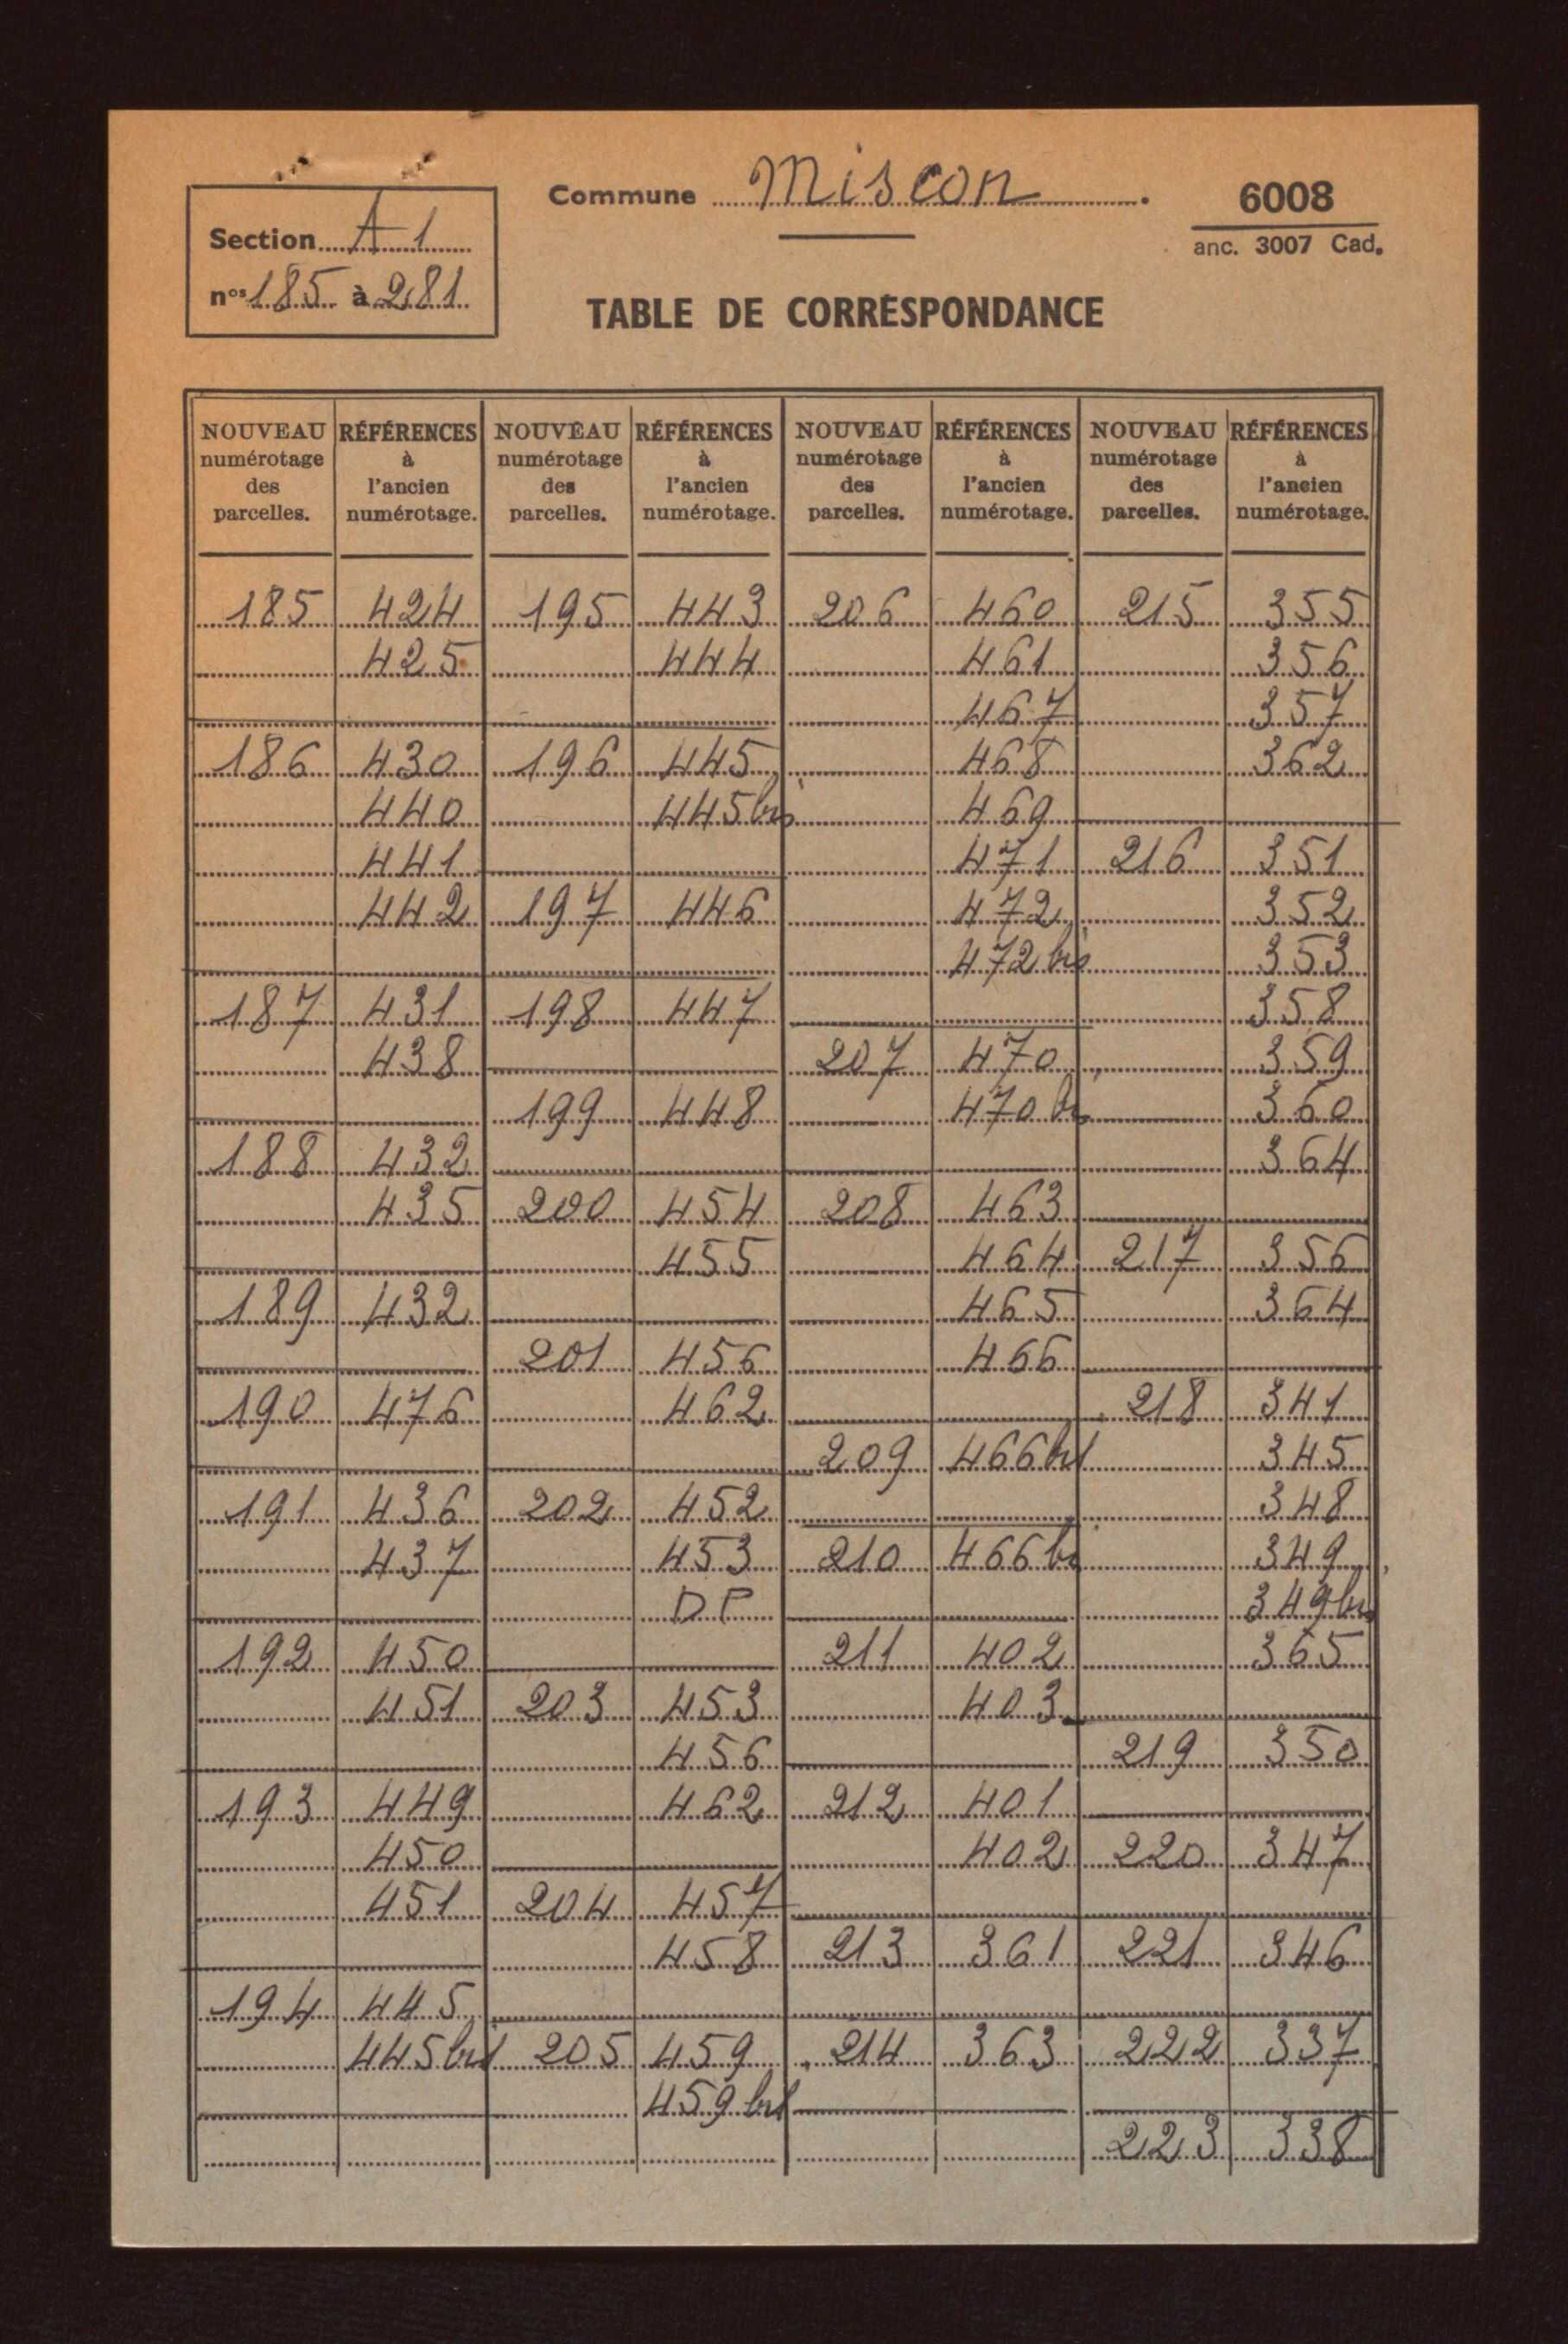 Section A 1
nos 185 à 281
Commune Miscon
6008
anc. 3007 Cad.
TABLE DE CORRESPONDANCE
NOUVEAU RÉFÉRENCES NOUVEAU RÉFÉRENCES NOUVEAU RÉFÉRENCES NOUVEAU RÉFÉRENCES
numérotage à numérotage à numérotage à numérotage à
des l'ancien des l'ancien des l'ancien des l'ancien
parcelles. numérotage. parcelles. numérotage. parcelles. numérotage. parcelles. numérotage.
185 424 195 443 206 460 215 355
425 444 461 356
467 357
186 430 196 445 468 362
440 445bis 469
441 471 216 351
442 197 446 472 352
472bis 353
187 431 198 447 358
438 207 470 359
199 448 470bis 360
188 432 364
435 200 454 208 463
455 464 217 356
189 432 465 364
201 456 466
190 476 462 218 341
209 466bis 345
191 436 202 452 348
437 453 210 466bis 349
DP 349bis
192 450 211 402 365
451 203 453 403
456 219 350
193 449 462 212 401
450 402 220 347
451 204 457
458 213 361 221 346
194 445
445bis 205 459 214 363 222 337
459bis
223 338